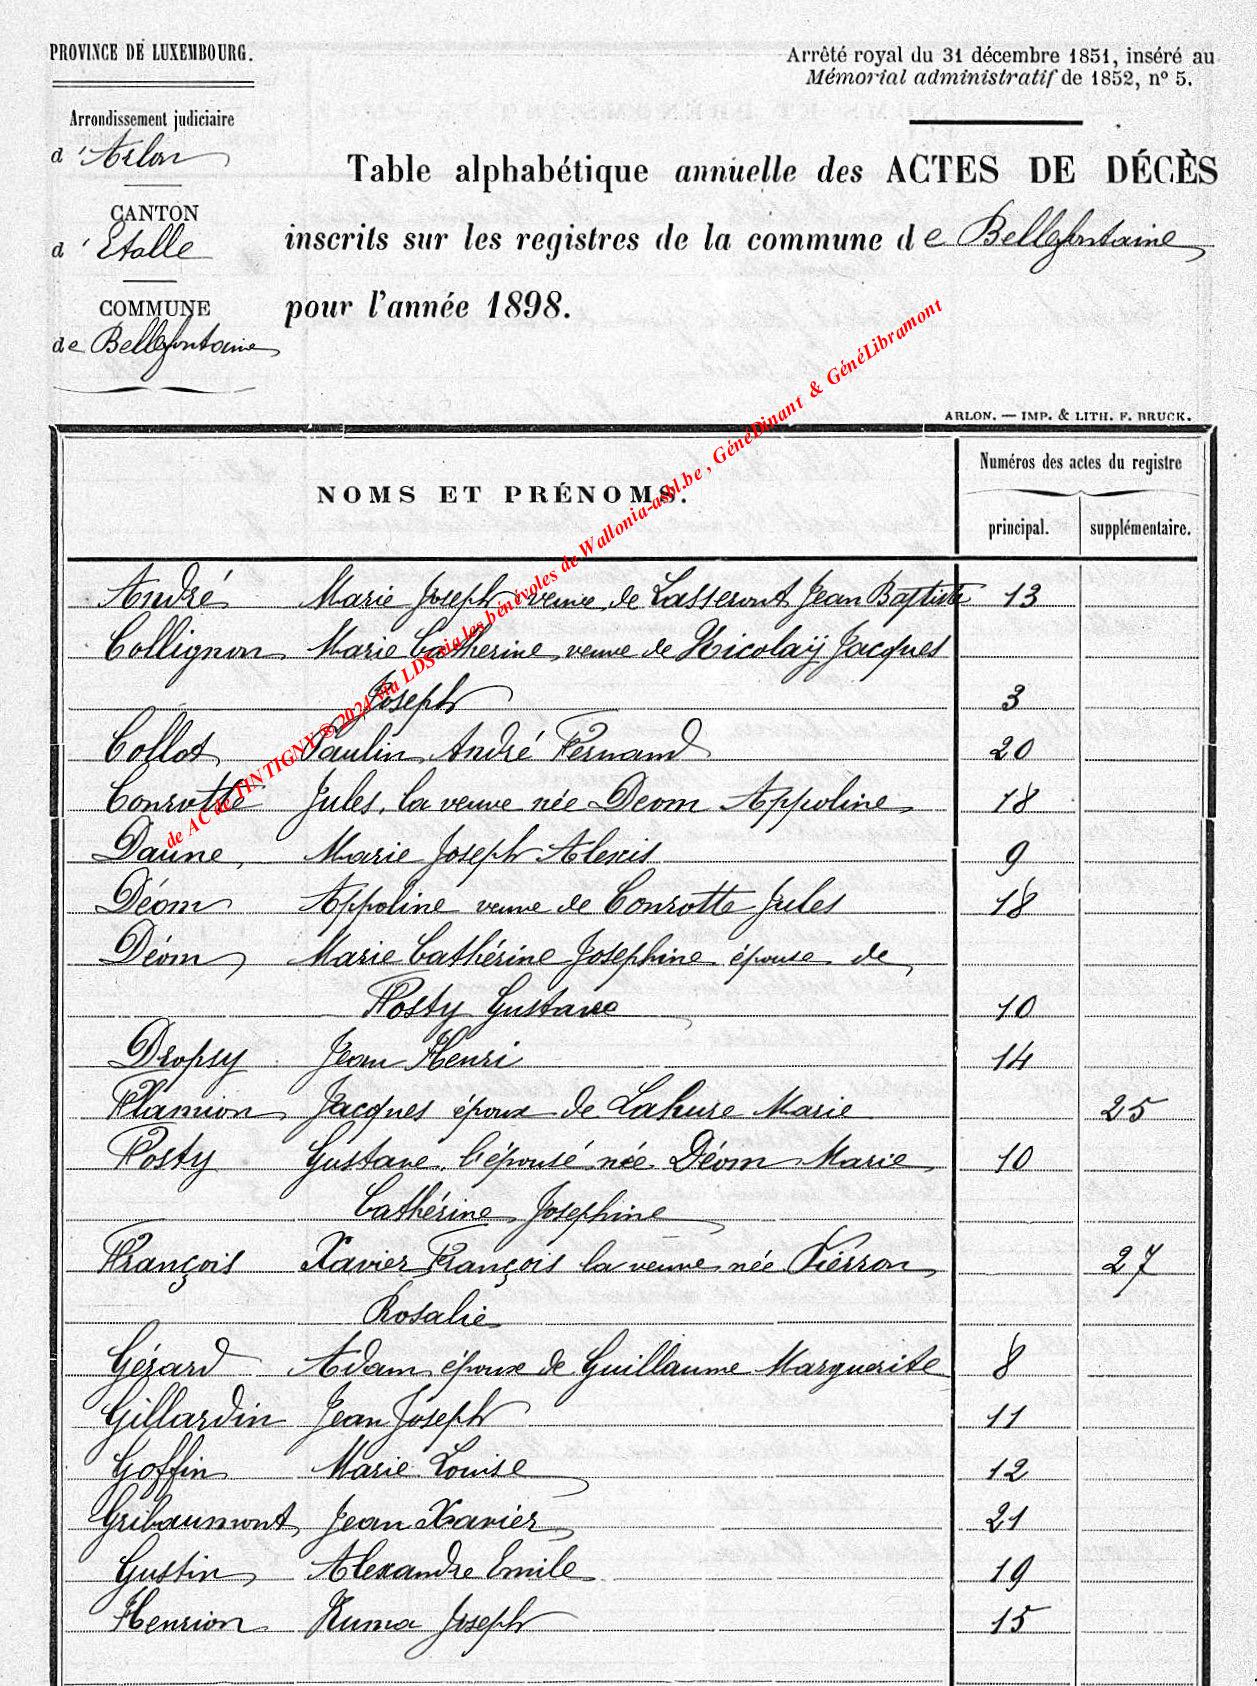 PROVINCE DE LUXEMBOURG.
Arrêté royal du 31 décembre 1851, inséré au
Mémorial administratif de 1852, nº 5.
Arrondissement judiciaire
d'Arlon
CANTON
d'Etalle
COMMUNE
de Bellefontaine
Table alphabétique annuelle des ACTES DE DÉCÈS
inscrits sur les registres de la commune de Bellefontaine
pour l'année 1898.
ARLON. — IMP. & LITH. F. BRUCK.
NOMS ET PRÉNOMS.
Numéros des actes du registre
principal. supplémentaire.
de AC de TINTIGNY © 2024 via LDS via les bénévoles de Wallonia-asbl.be , GénéDinant & GénéLibramont
André Marie Joseph veuve de Lasseront Jean Baptiste 13
Collignon Marie Catherine veuve de Nicolaÿ Jacques
Joseph 3
Collot Paulin André Fernand 20
Conrotte Jules, la veuve née Deom Appoline 18
Daune Marie Joseph Alexis 9
Déom Appoline veuve de Conrotte Jules 18
Déom Marie Cathérine Josephine épouse de
Fosty Gustave 10
Dropsy Jean Henri 14
Flamion Jacques époux de Lahure Marie 25
Fosty Gustave, l'épousé née Déom Marie 10
Cathérine Josephine
François Xavier François la veuve née Piérron 27
Rosalie
Gérard Adam époux de Guillaume Marguerite 8
Gillardin Jean Joseph 11
Goffin Marie Louise 12
Gribaumont Jean Xavier 21
Gustin Alexandre Emile 19
Henrion Numa Joseph 15